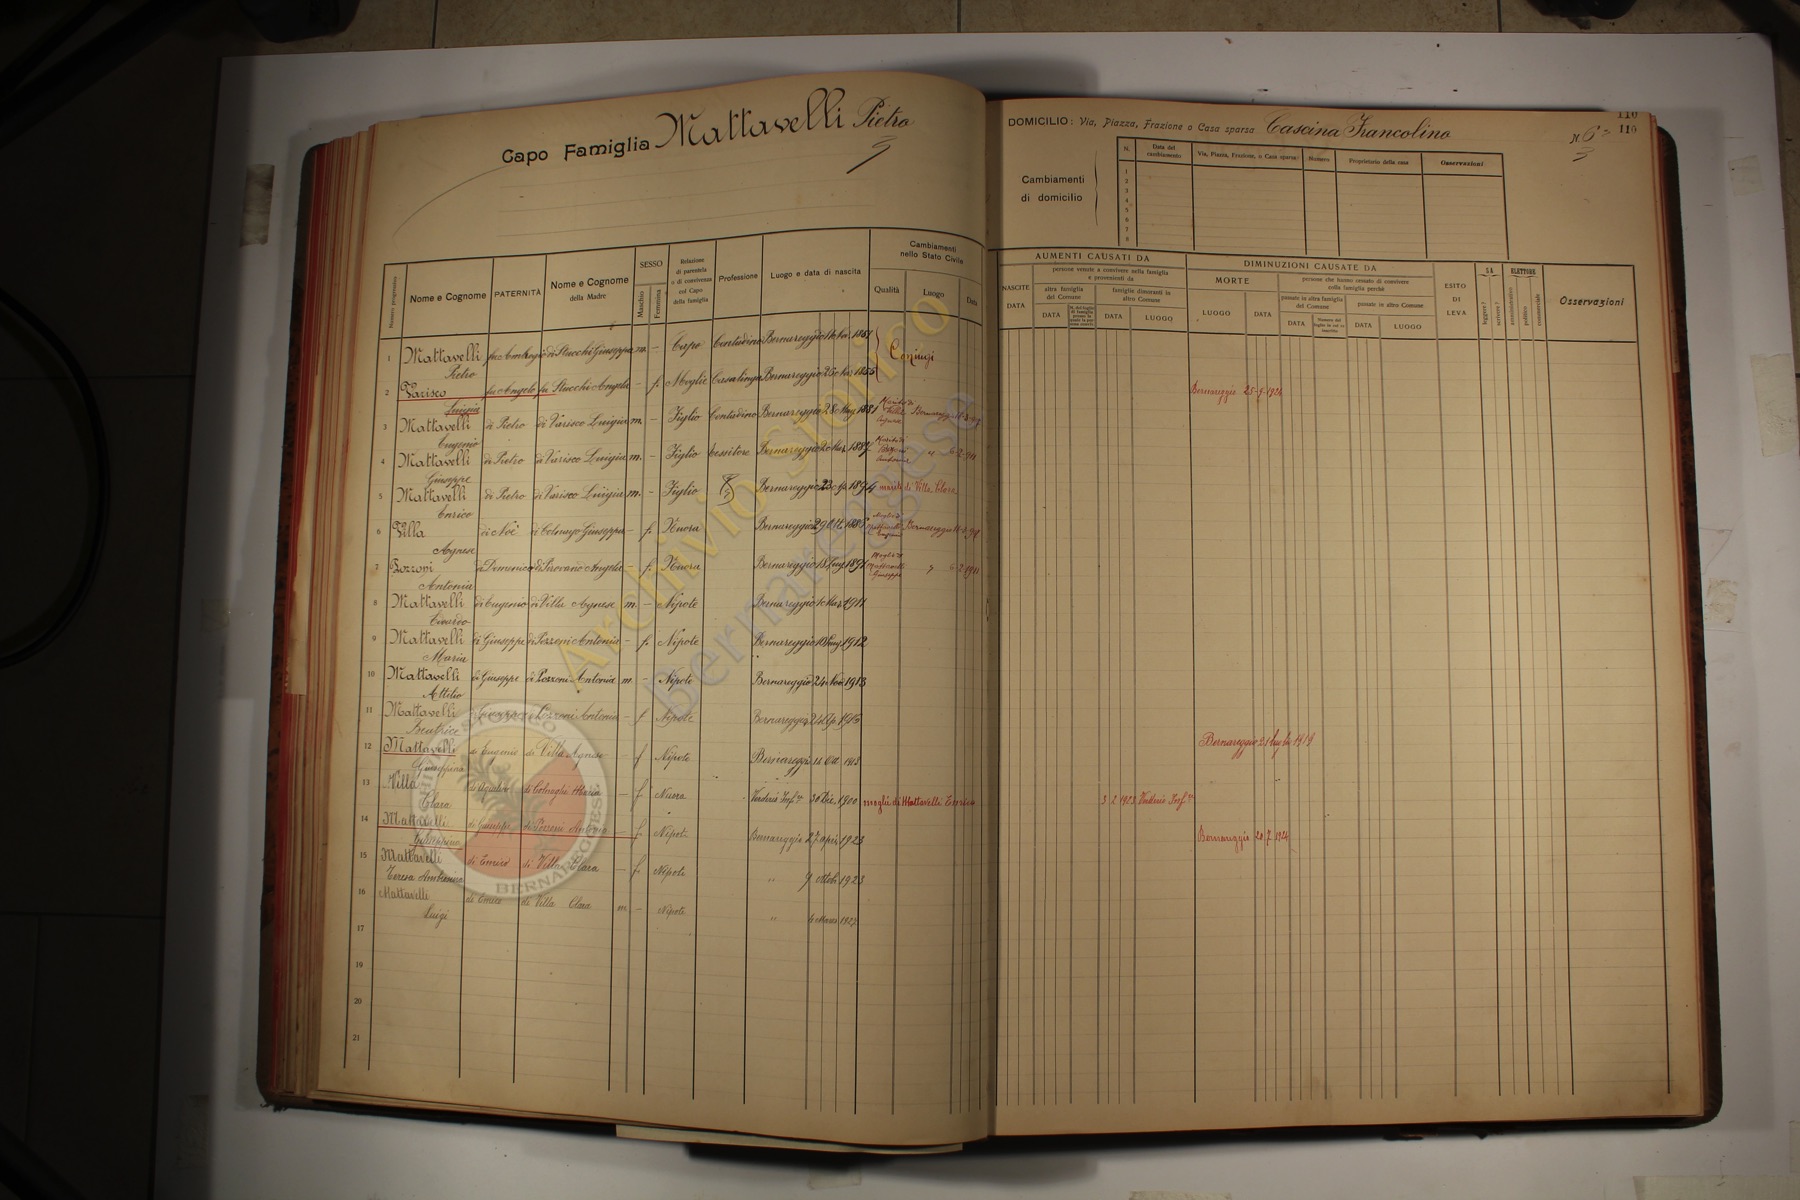 Capo Famiglia Mattavelli Pietro
DOMICILIO: Via, Piazza, Frazione o Casa sparsa Cascina Francolino
N. 6
110
110
Cambiamenti
di domicilio
N.
Data del
cambiamento
Via, Piazza, Frazione, o Casa sparsa
Numero
Proprietario della casa
Osservazioni
1
2
3
4
5
6
7
8
Numero progressivo
Nome e Cognome
PATERNITÀ
Nome e Cognome
della Madre
SESSO
Maschio
Femmina
Relazione
di parentela
o di convivenza
col Capo
della famiglia
Professione
Luogo e data di nascita
Cambiamenti
nello Stato Civile
Qualità
Luogo
Data
AUMENTI CAUSATI DA
NASCITE
DATA
persone venute a convivere nella famiglia
e provenienti da
altra famiglia
del Comune
DATA
famiglie dimoranti in
altro Comune
DATA
LUOGO
DIMINUZIONI CAUSATE DA
MORTE
LUOGO
DATA
persone che hanno cessato di convivere
colla famiglia perchè
passate in altra famiglia
del Comune
DATA
passate in altro Comune
DATA
LUOGO
ESITO
DI
LEVA
SA
leggere?
scrivere?
ELETTORE
amministrativo
politico
commerciale
Osservazioni
1 Mattavelli Pietro fu Ambrogio di Stucchi Giuseppa m. – Capo Contadino Bernareggio 1857 Coniugi
2 Varisco Luigia fu Angelo fu Stucchi Angela – f. Moglie Casalinga Bernareggio 25 1855 Bernareggio 25-9-1926
3 Mattavelli Eugenio di Pietro di Varisco Luigia m. – Figlio Contadino Bernareggio 28 Mag 1881 Marito di Villa Agnese Bernareggio
4 Mattavelli Giuseppe di Pietro di Varisco Luigia m. – Figlio tessitore Bernareggio 20 Mar. 1887 Marito di Pozzoni Antonia " 6-2-1911
5 Mattavelli Enrico di Pietro di Varisco Luigia m. – Figlio Bernareggio 23 1894 marito di Villa Clara
6 Villa Agnese di Noè di Colnago Giuseppa – f. Nuora Bernareggio 29 Ott. 1885 Moglie di Mattavelli Eugenio Bernareggio
7 Pozzoni Antonia di Domenico di Pirovano Angela – f. Nuora Bernareggio 18 Lug 1891 Moglie di Mattavelli Giuseppe " 6-2-1911
8 Mattavelli di Eugenio di Villa Agnese m. – Nipote Bernareggio 1 Mar. 1911
9 Mattavelli Maria di Giuseppe di Pozzoni Antonia – f. Nipote Bernareggio 1912
10 Mattavelli Attilio di Giuseppe di Pozzoni Antonia m. – Nipote Bernareggio 24 Nov 1913
11 Mattavelli Beatrice Giuseppe Pozzoni Antonia – f Nipote Bernareggio
12 Mattavelli Giuseppina di Eugenio di Villa Agnese – f Nipote Bernareggio 14 Ott Bernareggio 21 luglio 1919
13 Villa Clara di Colnaghi Maria – f. Nuora Verderio Inf.re 30 Dic. 1900 moglie di Mattavelli Enrico 3 2 1923 Verderio Inf.re
14 Mattavelli Giuseppina di Giuseppe di Pozzoni Antonia – f. Nipote Bernareggio 27 apri 1923 Bernareggio 20 7 1924
15 Mattavelli Teresa Ambrosina di Enrico di Villa Clara – f. Nipote " 9 ottob 1923
16 Mattavelli Luigi di Enrico di Villa Clara m – Nipote " 6 Marzo 1927
17
19
20
21
Archivio Storico
Bernareggese
ARCHIVIO STORICO
BERNAREGGESE